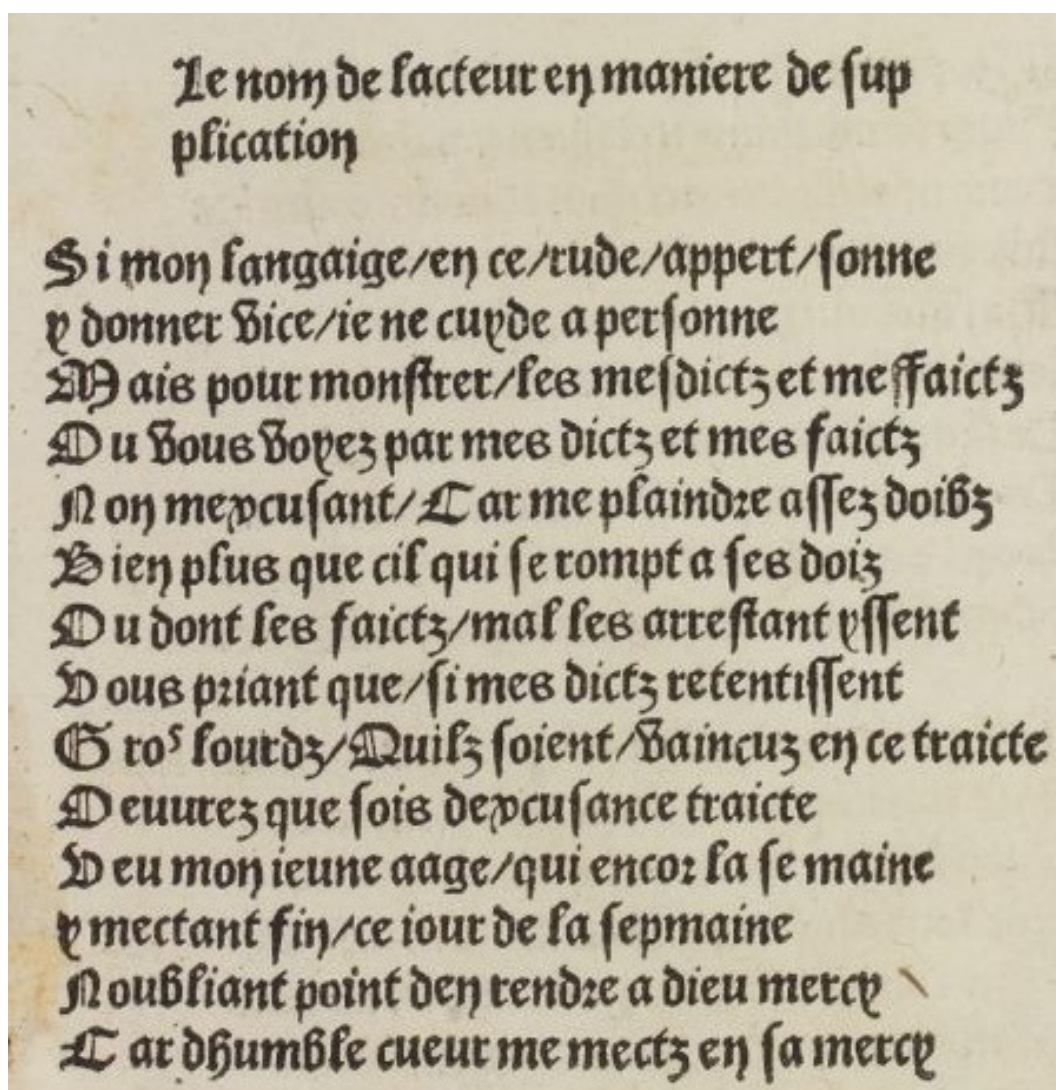 Le nom de lacteur en maniere de sup
plication
Si mon langaige/en ce/rude/appert/sonne
y donner vice/ie ne cuyde a personne
Mais pour monstrer/les mesdictz et meffaictz
Ou vous voyez par mes dictz et mes faictz
Non mexcusant/Car me plaindre assez doibz
Bien plus que cil qui se rompt a ses doiz
Ou dont les faictz/mal les arrestant yssent
Vous priant que/si mes dictz retentissent
Gros lourdz/Quilz soient/vaincuz en ce traicte
Oeuurez que sois dexcusance traicte
Veu mon ieune aage/qui encor la se maine
y mectant fin/ce iour de la sepmaine
Noubliant point den rendre a dieu mercy
Car dhumble cueur me mectz en sa mercy